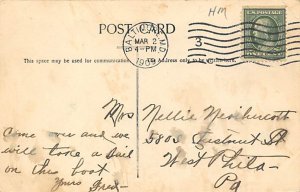 HM
POST CARD
BALTIMORE, MD.
MAR 2
4-PM
3
This space may be used for communication.
The Address only to be written here.
Mrs
Nellie
5802 Chestnut St
West Phila-
Pa
Come on and we
will take a sail
on this boat
Yours Fred-